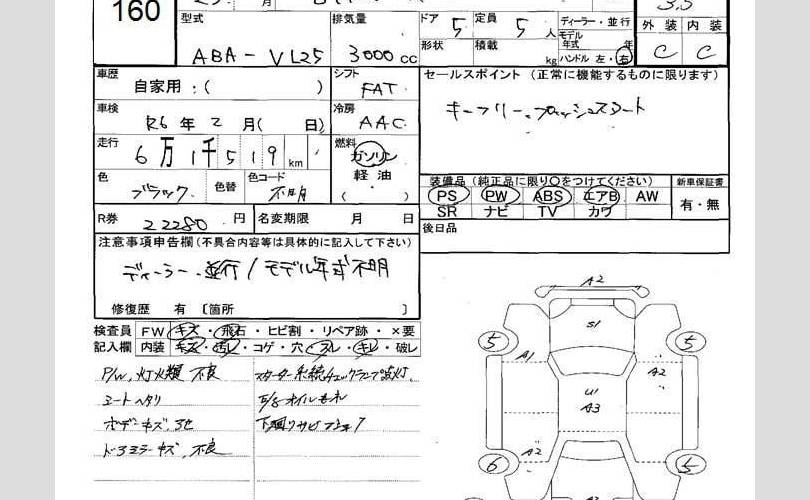 160
型式
ABA - VL25
排気量
3000 cc
ドア 5
形状
定員 5 人
積載 kg
ディーラー・並行
モデル年式 年
ハンドル 左・右
3.5
外装 内装
C C
車歴
自家用:( )
シフト
FAT
冷房
AAC
セールスポイント(正常に機能するものに限ります)
キーフリー、プッシュスタート
車検
R6 年 2 月( 日)
走行
6万1千519 km
燃料
ガソリン
軽油
( )
色
ブラック
色替
色コード
不明
装備品(純正品に限り〇をつけてください)
PS PW ABS エアB AW
SR ナビ TV カワ
新車保証書
有・無
R券 22280 円
名変期限 月 日
後日品
注意事項申告欄(不具合内容等は具体的に記入して下さい)
ディーラー、並行/モデル年式不明
修復歴 有 〔箇所 〕
検査員記入欄
FW キズ・飛石・ヒビ割・リペア跡・×要
内装 キズ・汚レ・コゲ・穴・スレ・キレ・破レ
P/W、灯火類 不良
シートヘタリ
ボデーキズ、
ドアミラーキズ、不良
チェックランプ点灯
E/Gオイルモレ
下廻りサビ
A2
S1
5
5
A1
A2
U1
A3
A2
6
5
A2